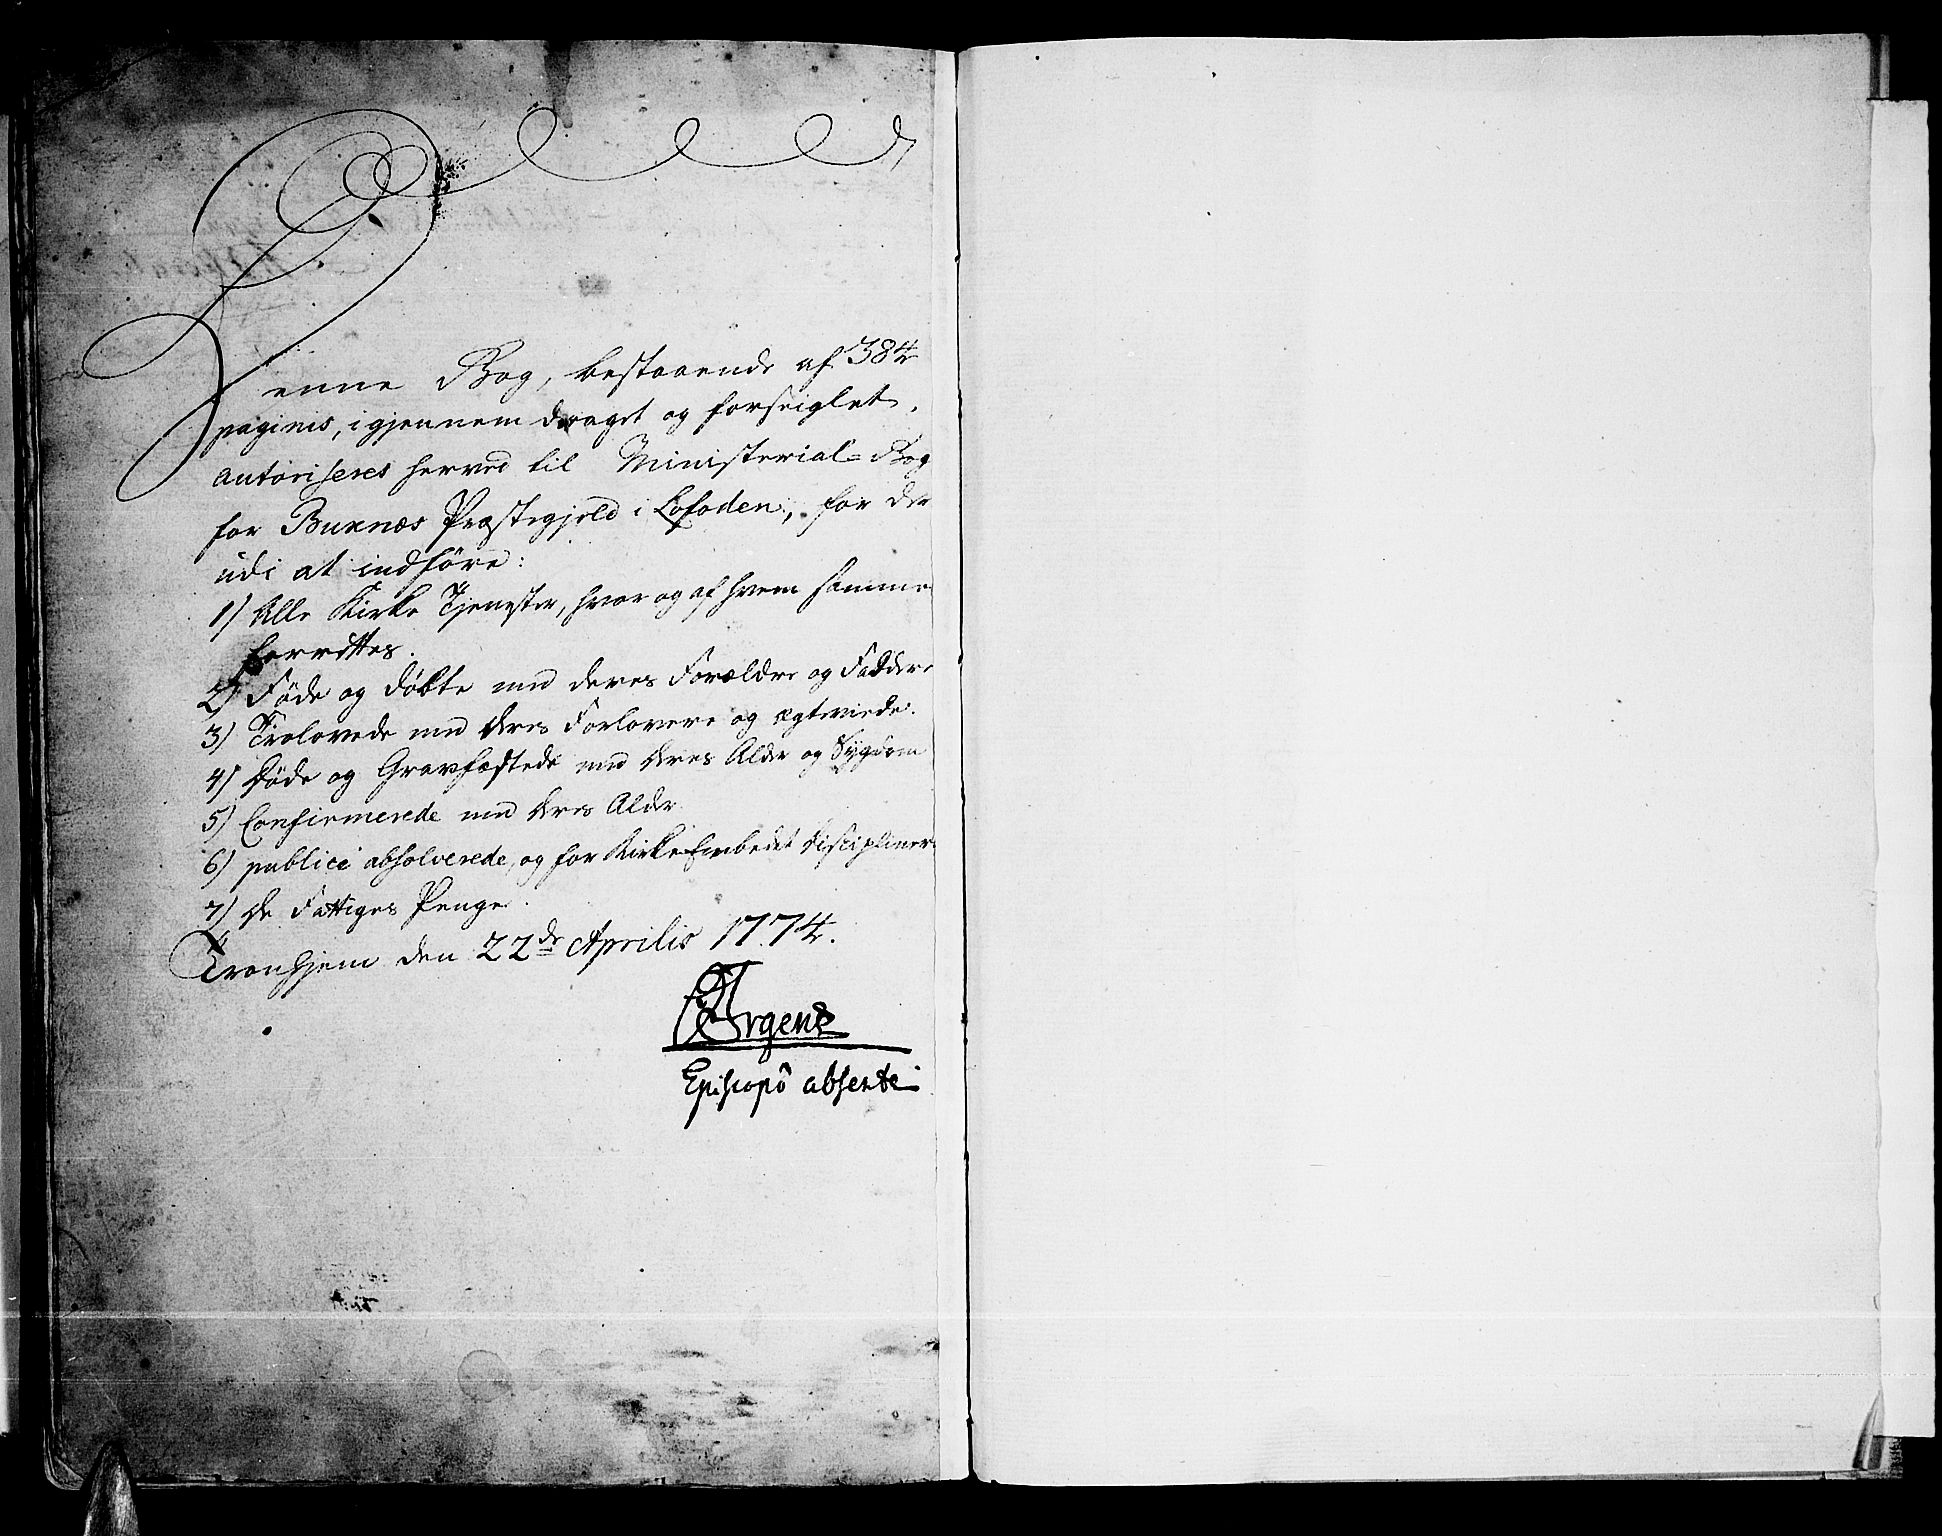 Denne Bog, bestaaende af 384
paginis, igjennem draget og forseiglet,
autoriseres herved til Ministerial-Bog
for Buxnæs Præstegjeld i Lofoden, for der
udi at indføre:
1) Alle Kirke Tjenester, hvor og af hvem samme
forrettes.
2) Føde og døbte med deres Forældre og Faddere
3) Trolovede med deres Forlovere og ægteviede.
4) Døde og Gravfæstede med deres Alder og Sygdom
5) Confirmerede med deres Alder
6) publicè absolverede, og for Kirke Embedet disciplinere
7) De Fattiges Penge.
Tronhjem den 22de Aprilis 1774.
Episcopô absente